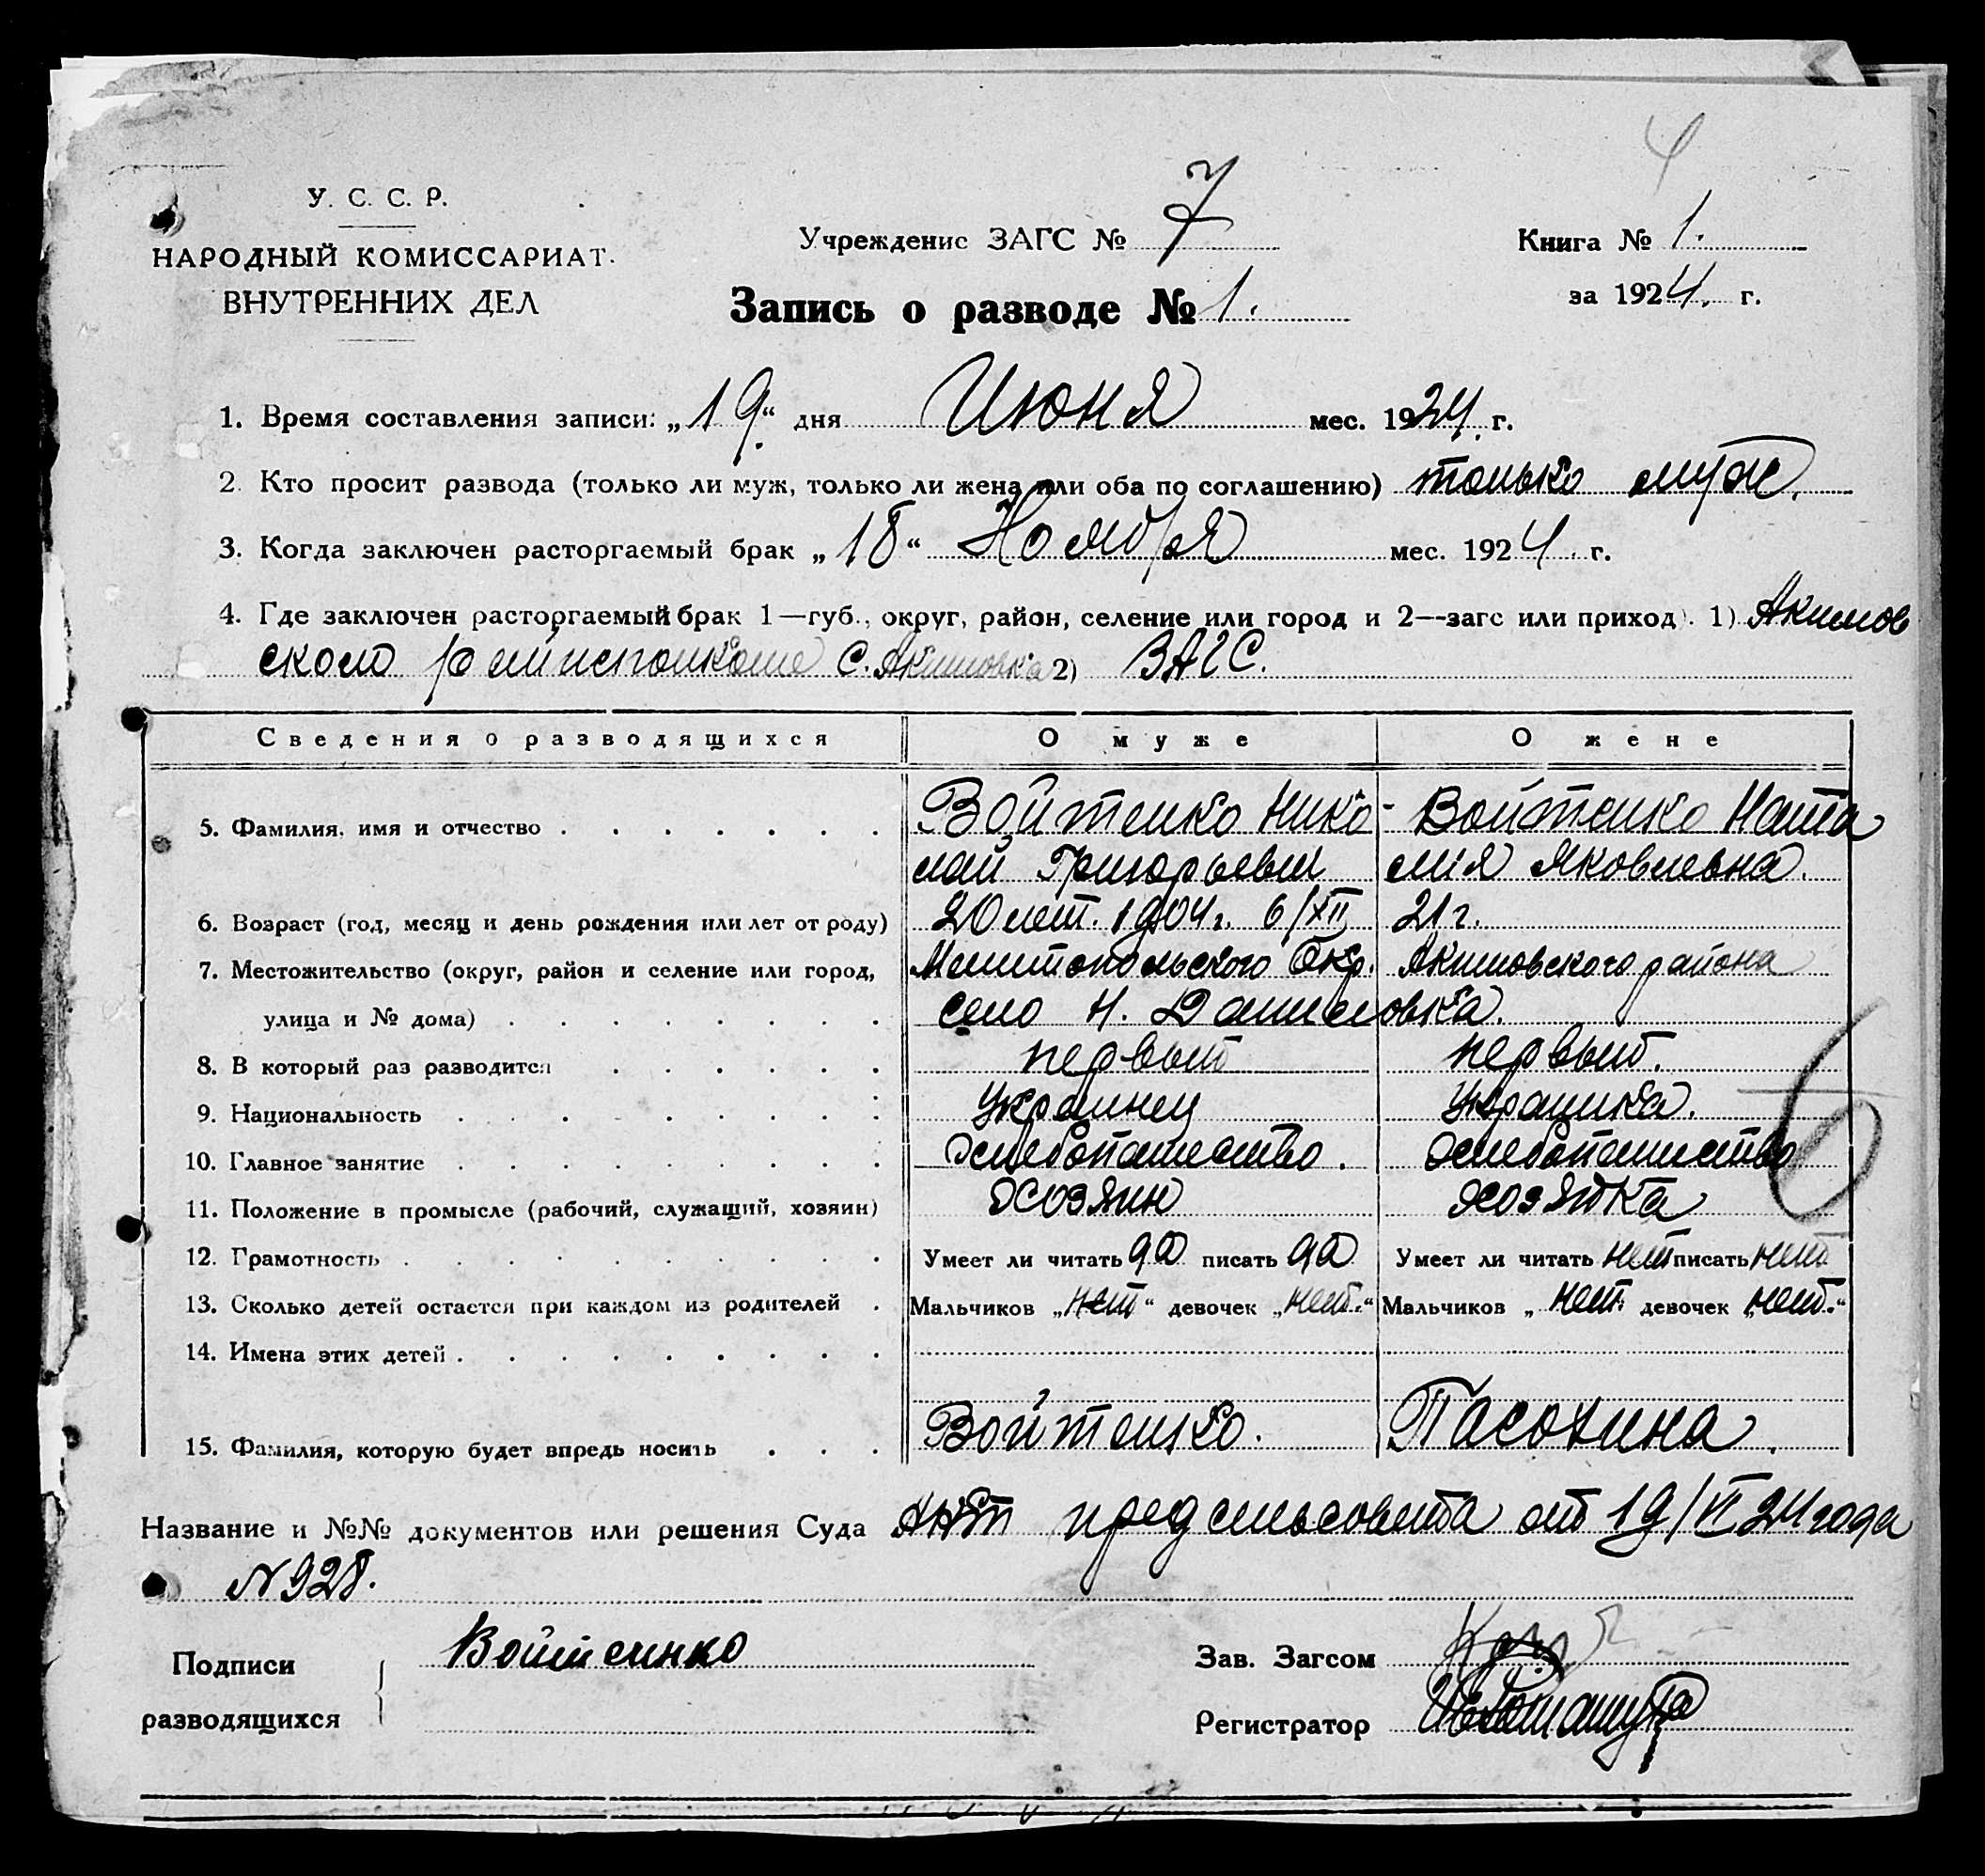 4
У. С. С. Р.
НАРОДНЫЙ КОМИССАРИАТ
ВНУТРЕННИХ ДЕЛ
Учреждение ЗАГС № 7
Книга № 1.
за 1924. г.
Запись о разводе № 1.
1. Время составления записи: „19“ дня Июня мес. 1924. г.
2. Кто просит развода (только ли муж, только ли жена или оба по соглашению) только муж.
3. Когда заключен расторгаемый брак „18“ Ноября мес. 1924. г.
4. Где заключен расторгаемый брак 1—губ., округ, район, селение или город и 2—загс или приход). 1) Акимов
ского райисполкоме с. Акимовка 2) ЗАГС.
Сведения о разводящихся О муже О жене
5. Фамилия, имя и отчество Войтенко Нико- Войтенко Ната
лай Григорьевич лия Яковлевна.
6. Возраст (год, месяц и день рождения или лет от роду) 20 лет. 1904 г. 6/XII 21 г.
7. Местожительство (округ, район и селение или город, Мелитопольского Окр. Акимовского района
улица и № дома) село Н. Даниловка.
8. В который раз разводится первый первый.
9. Национальность Украинец Украинка.
10. Главное занятие Хлебопашество. Хлебопашество
11. Положение в промысле (рабочий, служащий, хозяин) Хозяин хозяйка
12. Грамотность Умеет ли читать да писать да Умеет ли читать нет писать нет
13. Сколько детей остается при каждом из родителей Мальчиков „нет“ девочек „нет.“ Мальчиков „нет. девочек „нет.“
14. Имена этих детей
15. Фамилия, которую будет впредь носить Войтенко. Пасохина.
Название и №№ документов или решения Суда предсельсовета от 19/VI 24 года
N 928.
Подписи разводящихся Войтенко
Зав. Загсом
Регистратор